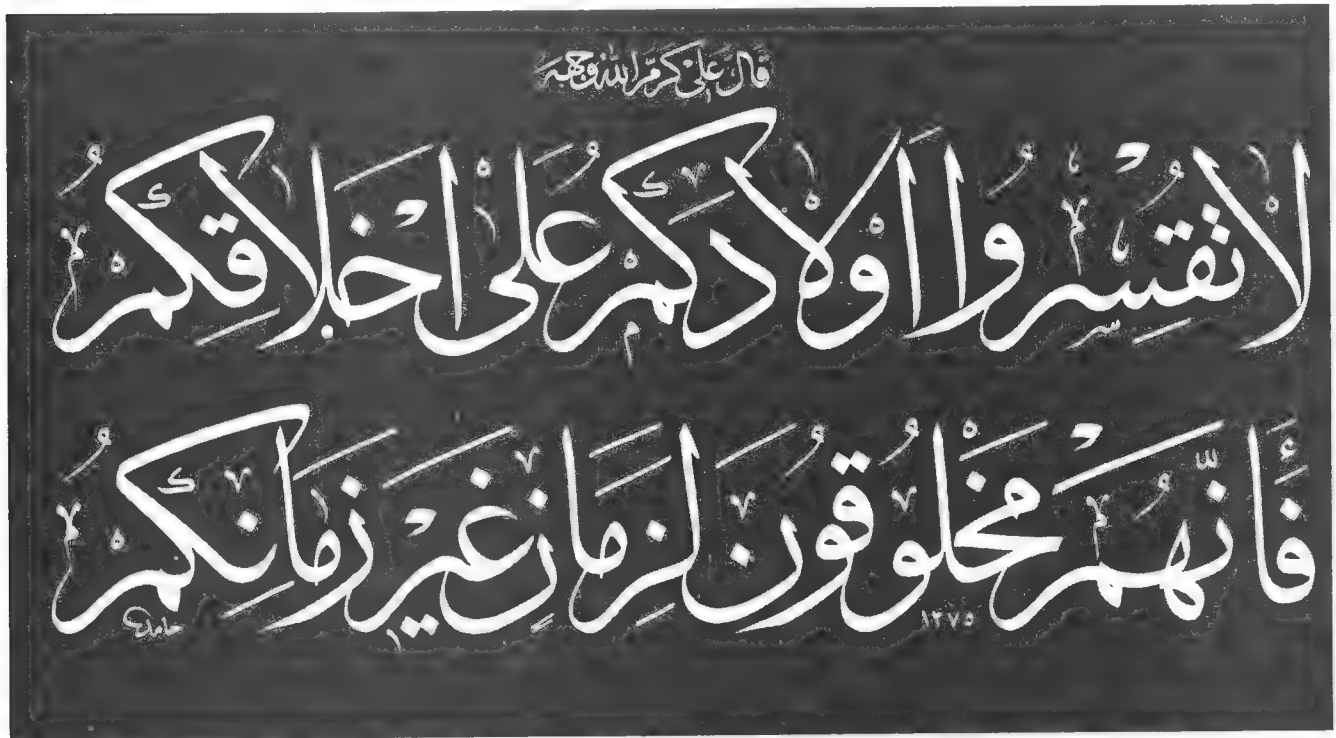 قَالَ عَلِيٌّ كَرَّمَ اللّٰهُ وَجْهَهُ
لَا تَقْسِرُوا اَوْلَادَكُمْ عَلَى اَخْلَاقِكُمْ
فَاِنَّهُمْ مَخْلُوقُونَ لِزَمَانٍ غَيْرِ زَمَانِكُمْ
١٣٧٥
حامد